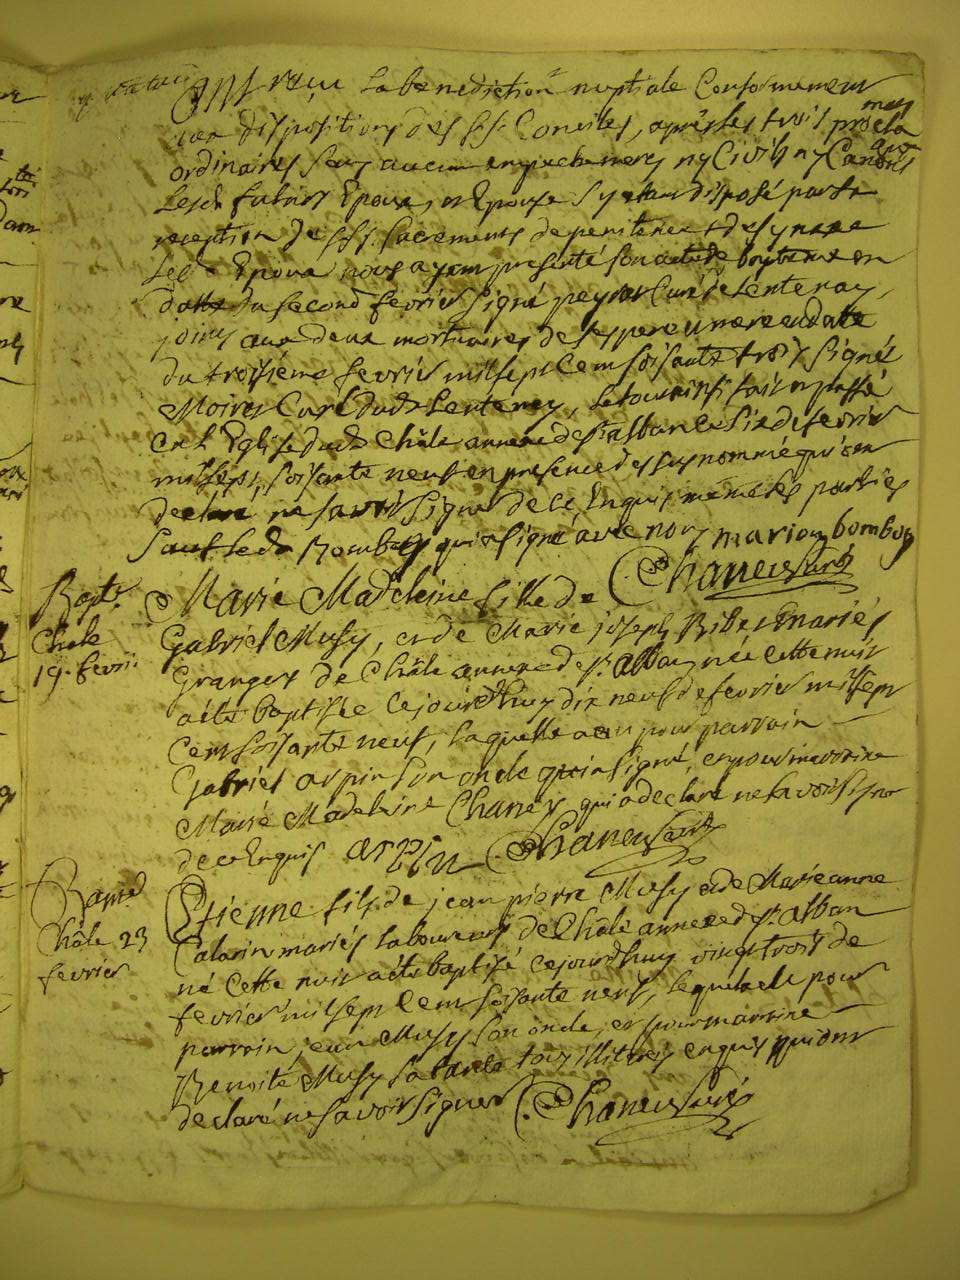 ont reçu la benediction nuptiale Conformement
aux dispositions des sts Conciles, après les trois procla
mons
ordinaires sans aucun empechements ny Civils ny Canons
ques
Lesd. futurs Epoux, et Epouse s'y étant disposé par la
reception des sts sacrements de penitence et de synaxe
Led. Epoux nous ayant presenté son acte de bapteme en
datte du second fevrier signé peysson Curé de Lentenay,
joins aux deux mortuaires de ses pere et mere en datte
du troisiéme fevrier mil sept Cent soisante trois signés
Moiret Curé dud. Lentenay, le tout ainsi fait et passé
en L'Eglise dud. Châle annexe de st alban Le six de fevrier
mil sept soisante neuf en presence des susnommés qui ont
declaré ne savoir signer de ce Enquis meme les parties
sauf led. Bombois qui a signé avec nous marion bomboy
Chaneu Curé
Bapte.
Châle
19. fevrii
Marie Madeleine fille de
Gabriel Musy, et de Marie joseph Ribet mariés
Grangers de Châle annexe de st. alban née cette nuit
a été baptisée Cejourd'huy dix neuf de fevrier mil sept
Cent soisante neuf, laquelle a eu pour parrain
Gabriel arpin son oncle qui a signé, et pour marraine
Marie Madeleine Chanex qui a declaré ne savoir signer
de ce Enquis arpin Chaneu Curé
Châle 23
fevrier
Etienne fils de jean pierre Musy et de Marie anne
mariés laboureurs de Châle annexe de st. alban
né cette nuit a été baptisé cejourd'huy vingt trois de
fevrier mil sept Cent soisante neuf, lequel a eu pour
parrain jean Musy son oncle, et pour marraine
Benoite Musy sa tante tous illitrés enquis qui ont
declaré ne savoir signer Chaneu Curé